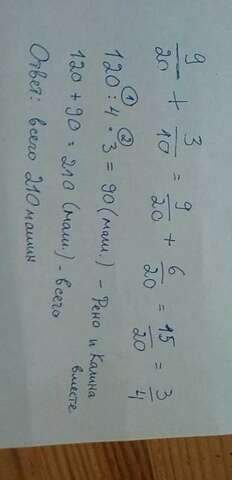 9/20 + 3/10 = 9/20 + 6/20 = 15/20 = 3/4
① ②
120 : 4 · 3 = 90 (маш.) - Рено и Калина
вместе
120 + 90 = 210 (маш.) - всего
Ответ: всего 210 машин